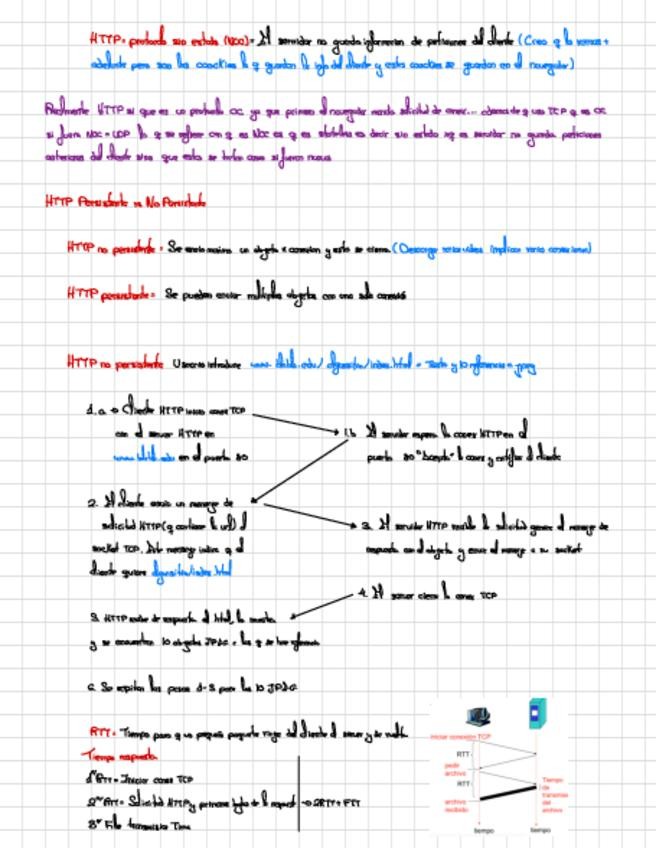 HTTP= protocolo sin estado (NOC)= El servidor no guarda informacion de peticiones del cliente (Creo q lo vemos +
adelante pero son las coockies la q guardan la info del cliente y estas coockies se guardan en el navegador)
Realmente HTTP si que es un protocolo OC ya que primero el navegador manda solicitud de conex... ademas de q usa TCP q es OC
si fuera NOC = UDP lo q se refiere con q es NOC es q es stateless es decir sin estado xq es servidor no guarda peticiones
anteriores del cliente sino que estas se tratan como si fueran nuevas
HTTP Persistente vs No Persistente
HTTP no persistente = Se envia maximo un objeto x conexion y esta se cierra. (Descargar varios implican varias conexiones)
HTTP persistente = Se pueden enviar multiples objetos con una sola conexión
HTTP no persistente Usuario introduce /index.html = Texto y 10 referencias a jpeg
1.a → Cliente HTTP inicia conex TCP
con el server HTTP en
en el puerto 80
1.b El servidor espera la conex HTTP en el
puerto 80 "acepta" la conex y notifica al cliente
2. El cliente envia un mensaje de
solicitud HTTP (q contiene la url) al
socket TCP. Este mensaje indica q el
cliente quiere /index.html
3. El servidor HTTP recibe la solicitud genera el mensaje de
respuesta con el objeto y envia el mensaje a su socket
4. El server cierra la conex TCP
5. HTTP recibe la respuesta el html, lo muestra
y se encuentran 10 objetos JPEG a los q se hace referencia
6. Se repiten los pasos 1-5 para los 10 JPEG
RTT = Tiempo para q un pequeño paquete viaje del cliente al server y de vuelta.
Tiempo respuesta
1º RTT = Iniciar conex TCP
2º RTT = Solicitud HTTP y primeros bytes de la respuesta → 2RTT + FTT
3º File transmission Time
iniciar conexión TCP
RTT
pedir
archivo
RTT
archivo
recibido
Tiempo
de
transmisión
del
archivo
tiempo
tiempo